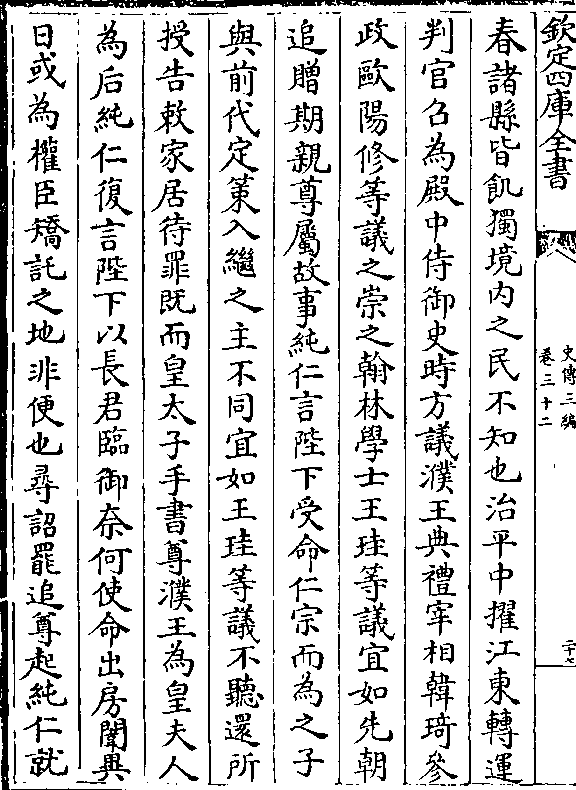 欽定四庫全書
史傳三編
卷三十二
二十七
春諸縣皆飢獨境内之民不知也治平中擢江東轉運
判官召為殿中侍御史時方議濮王典禮宰相韓琦參
政歐陽修等議之崇之翰林學士王珪等議宜如先朝
追贈期親尊屬故事純仁言陛下受命仁宗而為之子
與前代定策入繼之主不同宜如王珪等議不聽還所
授告敕家居待罪既而皇太子手書尊濮王為皇夫人
為后純仁復言陛下以長君臨御奈何使命出房闈異
日或為權臣矯託之地非便也尋詔罷追尊起純仁就